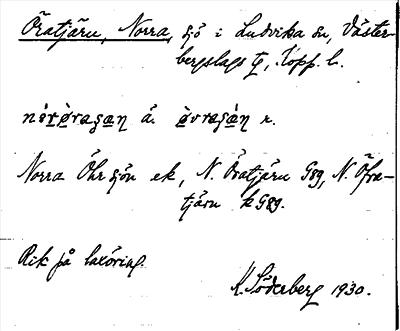 Öratjärn, Norra, sjö i Ludvika sn, Väster-
bergslags tg, Kopp. l.
å.
r.
Norra Öhrsjön ek, N. Öratjärn G89, N. Öfra-
tjärn k G89.
Rik på laxöring.
K. Söderberg 1930.